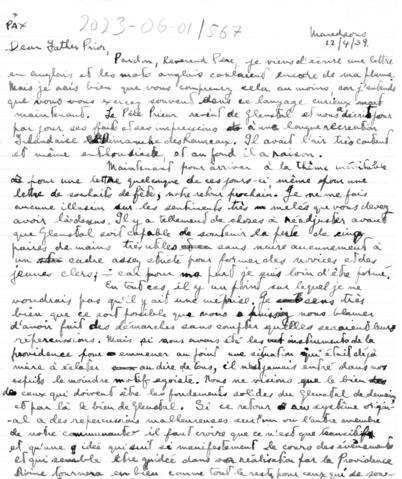 PAX
2023-06-01/567
Maredsous
12/4/39.
Dear Father Prior,
Pardon, Révérend Père, je viens d'écrire une lettre
en anglais et les mots anglais coulaient encore de ma plume.
Mais je sais bien que vous comprenez cela au moins, car j'entends
que vous vous exercez souvent dans ce langage curieux
maintenant. Le Père Prieur revint de Glenstal et nous décrit
par jour ses faits et ses impressions à une longue récréation
Irlandaise dimanche des Rameaux. Il avait l'air très content
et même enthousiaste et au fond il a raison.
Maintenant pour arriver à la thème inévitable
pour une lettre quelconque de ces jours-ci même pour une
lettre de souhaits de fête, notre retour prochain. Je ne me fais
aucune illusion sur les sentiments très mêlés que vous devez
avoir là-dessus. Il y a tellement de choses à réadjuster avant
que Glenstal soit capable de soutenir la perte de cinq
paires de mains très utiles sans nuire aucunement à
un cadre assez strict pour former des novices et des
jeunes clercs; car pour ma part je suis loin d'être formé.
En tout cas, il y a un point sur lequel je ne
voudrais pas qu'il y ait une méprise. Je sens très
bien que ce soit possible que nous puissiez nous blamer
d'avoir fait des démarches sans compter quelles seraient leurs
répercussions. Mais si nous avons été les instruments de la
providence pour emmener au point une situation qui était déjà
mûre à éclater au dire de tous, il n'est jamais entré dans nos
esprits le moindre motif égoiste. Nous ne visions que le bien
de ceux qui doivent être les fondements solides du Glenstal de demain
et par là le bien de Glenstal. Si ce retour au système origin-
-al a des repercussions malheureuses sur l'un ou l'autre membre
de notre communauté il faut croire que ce n'est que transitif
et qu'une idée qui suit si manifestement le cours des évènements
et qui semble être guidée dans sa réalisation par la Providence
Divine tournera en bien comme tout le reste pour ceux qui se